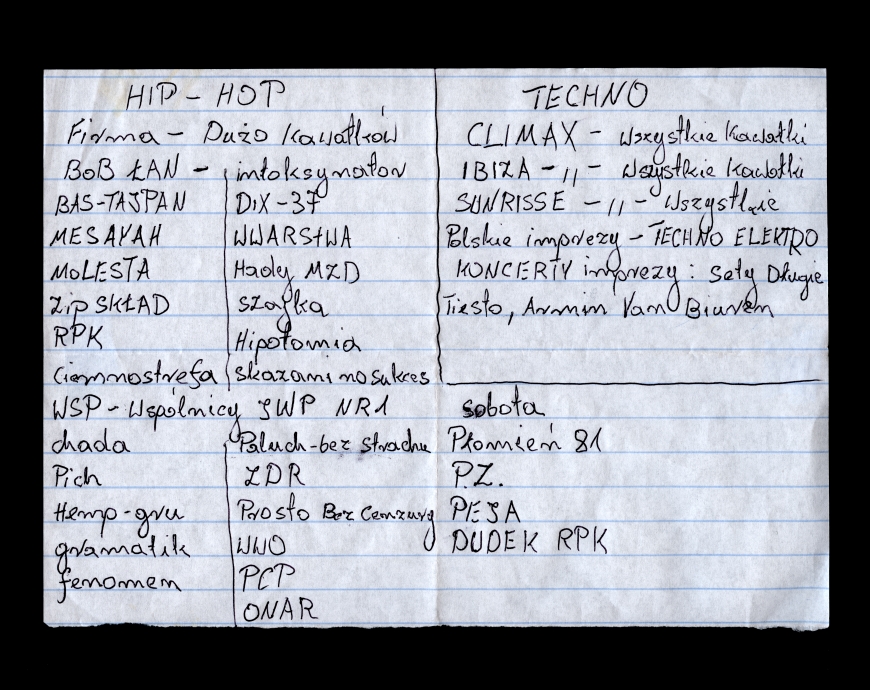 HIP - HOP
Firma - Dużo Kawałków
BOB ŁAN - intoksynator
BAS-TAJPAN DIX-37
MESAYAH WWARStWA
MOLESTA Hady MZD
Zip SKŁAD szajka
RPK Hipotomia
Ciemnostrefa skazani na sukces
WSP - Wspólnicy JWP NR1
chada Paluch-bez strachu
Pich ZDR
Hemp-gru Prosto Bez Cenzury
gramatik WWO
fenomen PCP
ONAR
TECHNO
CLIMAX - Wszystkie kawałki
IBIZA - ,, - Wszystkie kawałki
SUNRISSE - ,, - Wszystkie
Polskie imprezy - TECHNO ELEKTRO
KONCERTY imprezy : Sety Długie
Tiesto, Armin Van Biuren
sobota
Płomień 81
P.Z.
PEJA
DUDEK RPK